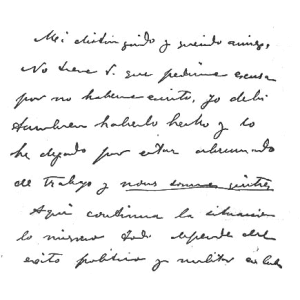 Mi distinguido y querido amigo,
No tiene V. que pedirme escusa
por no haberme escrito, yo debí
tambien haberlo hecho y lo
he dejado por estar abrumado
de trabajo y nous sommes quittes
Aquí continua la situacion
lo mismo todo depende del
exito politico y militar en